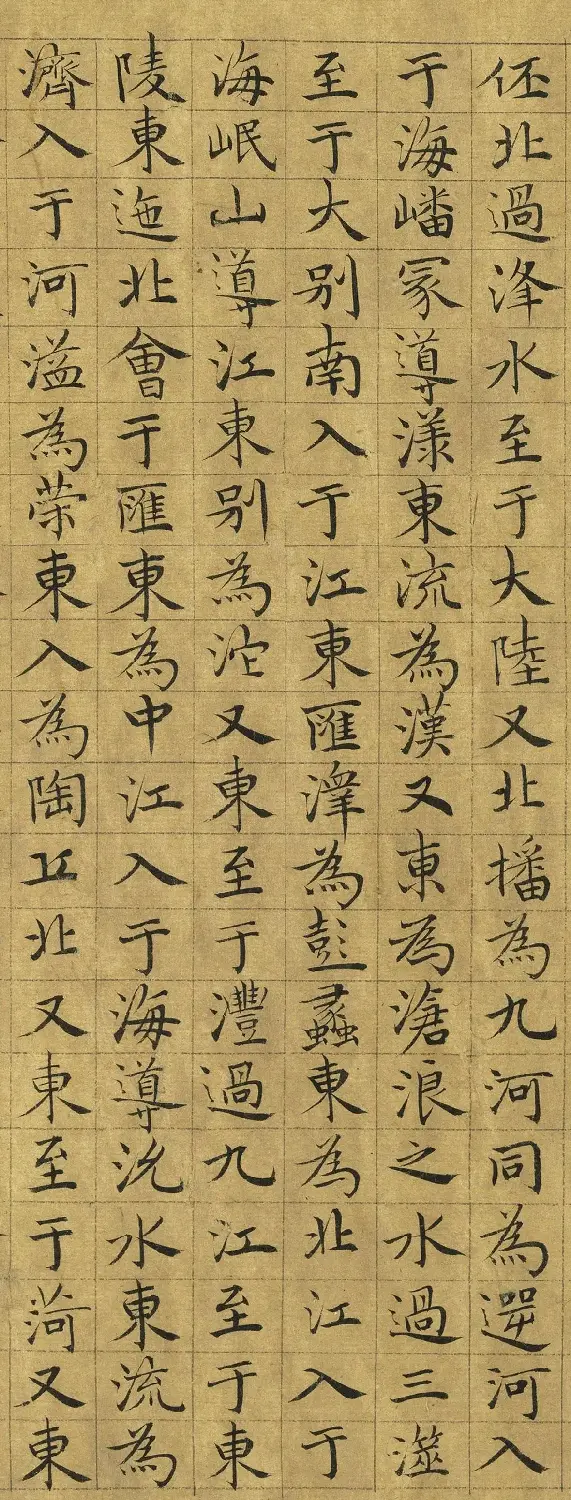 伾北過洚水至于大陸又北播為九河同為逆河入
于海嶓冢導漾東流為漢又東為滄浪之水過三澨
至于大别南入于江東匯澤為彭蠡東為北江入于
海岷山導江東别為沱又東至于灃過九江至于東
陵東迤北會于匯東為中江入于海導沇水東流為
濟入于河溢為荣東入為陶丘北又東至于菏又東